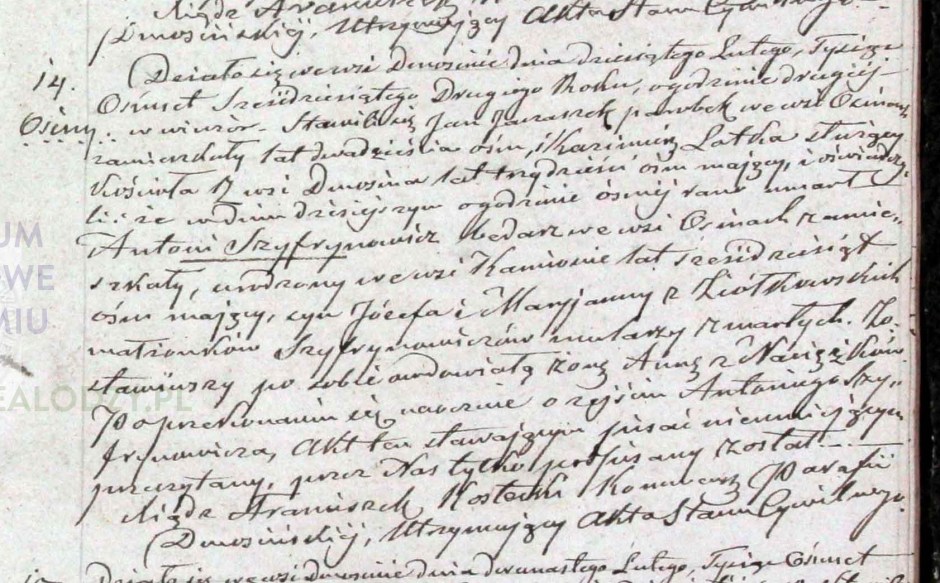 Xiądz Franciszek
Dmosińskiéj, Utrzymujący Akta Stanu Cywilnego.
14.
Osiny.
Działo się we wsi Dmosinie dnia dziesiątego Lutego, Tysiąc
Ośmset Sześćdziesiątego Drugiego Roku, o godzinie drugiéj
w wieczór. Stawili się Jan Jaraszek parobek we wsi Osinach
zamieszkały lat dwadzieścia ośm, i Kazimierz Latka sługa
Kościoła z wsi Dmosina lat trzydzieści ośm mający, i oświadczy-
li: że w dniu dzisiejszym o godzinie ósméj rano umarł
Antoni Szyfrynowicz bednarz we wsi Osinach zamie-
szkały, urodzony we wsi Kamionie lat sześćdziesiąt
ośm mający, syn Józefa i Maryjanny z Ziółkowskich
małżonków Szyfrynowiczów mularzy zmarłych. Zo-
stawiwszy po sobie owdowiałą żonę Annę z
Po przekonaniu się naocznie o zejściu Antoniego Szy-
frynowicza, Akt ten stawającym pisać nieumiejącym
przeczytany, przez Nas tylko podpisany został.
Xiądz Franciszek Kostecki Komendarz Parafii
Dmosińskiéj, Utrzymujący Akta Stanu Cywilnego.
Działo się we wsi Dmosinie dnia dwunastego Lutego, Tysiąc Ośmset
UM
WE
MIU
EALODZY.PL